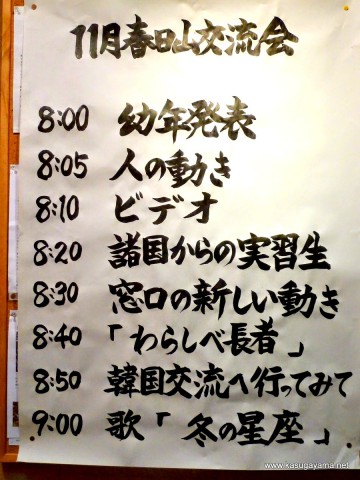 11月春日山交流会
8:00 幼年発表
8:05 人の動き
8:10 ビデオ
8:20 諸国からの実習生
8:30 窓口の新しい動き
8:40 「わらしべ長者」
8:50 韓国交流へ行ってみて
9:00 歌「冬の星座」
www.kasugayama.net